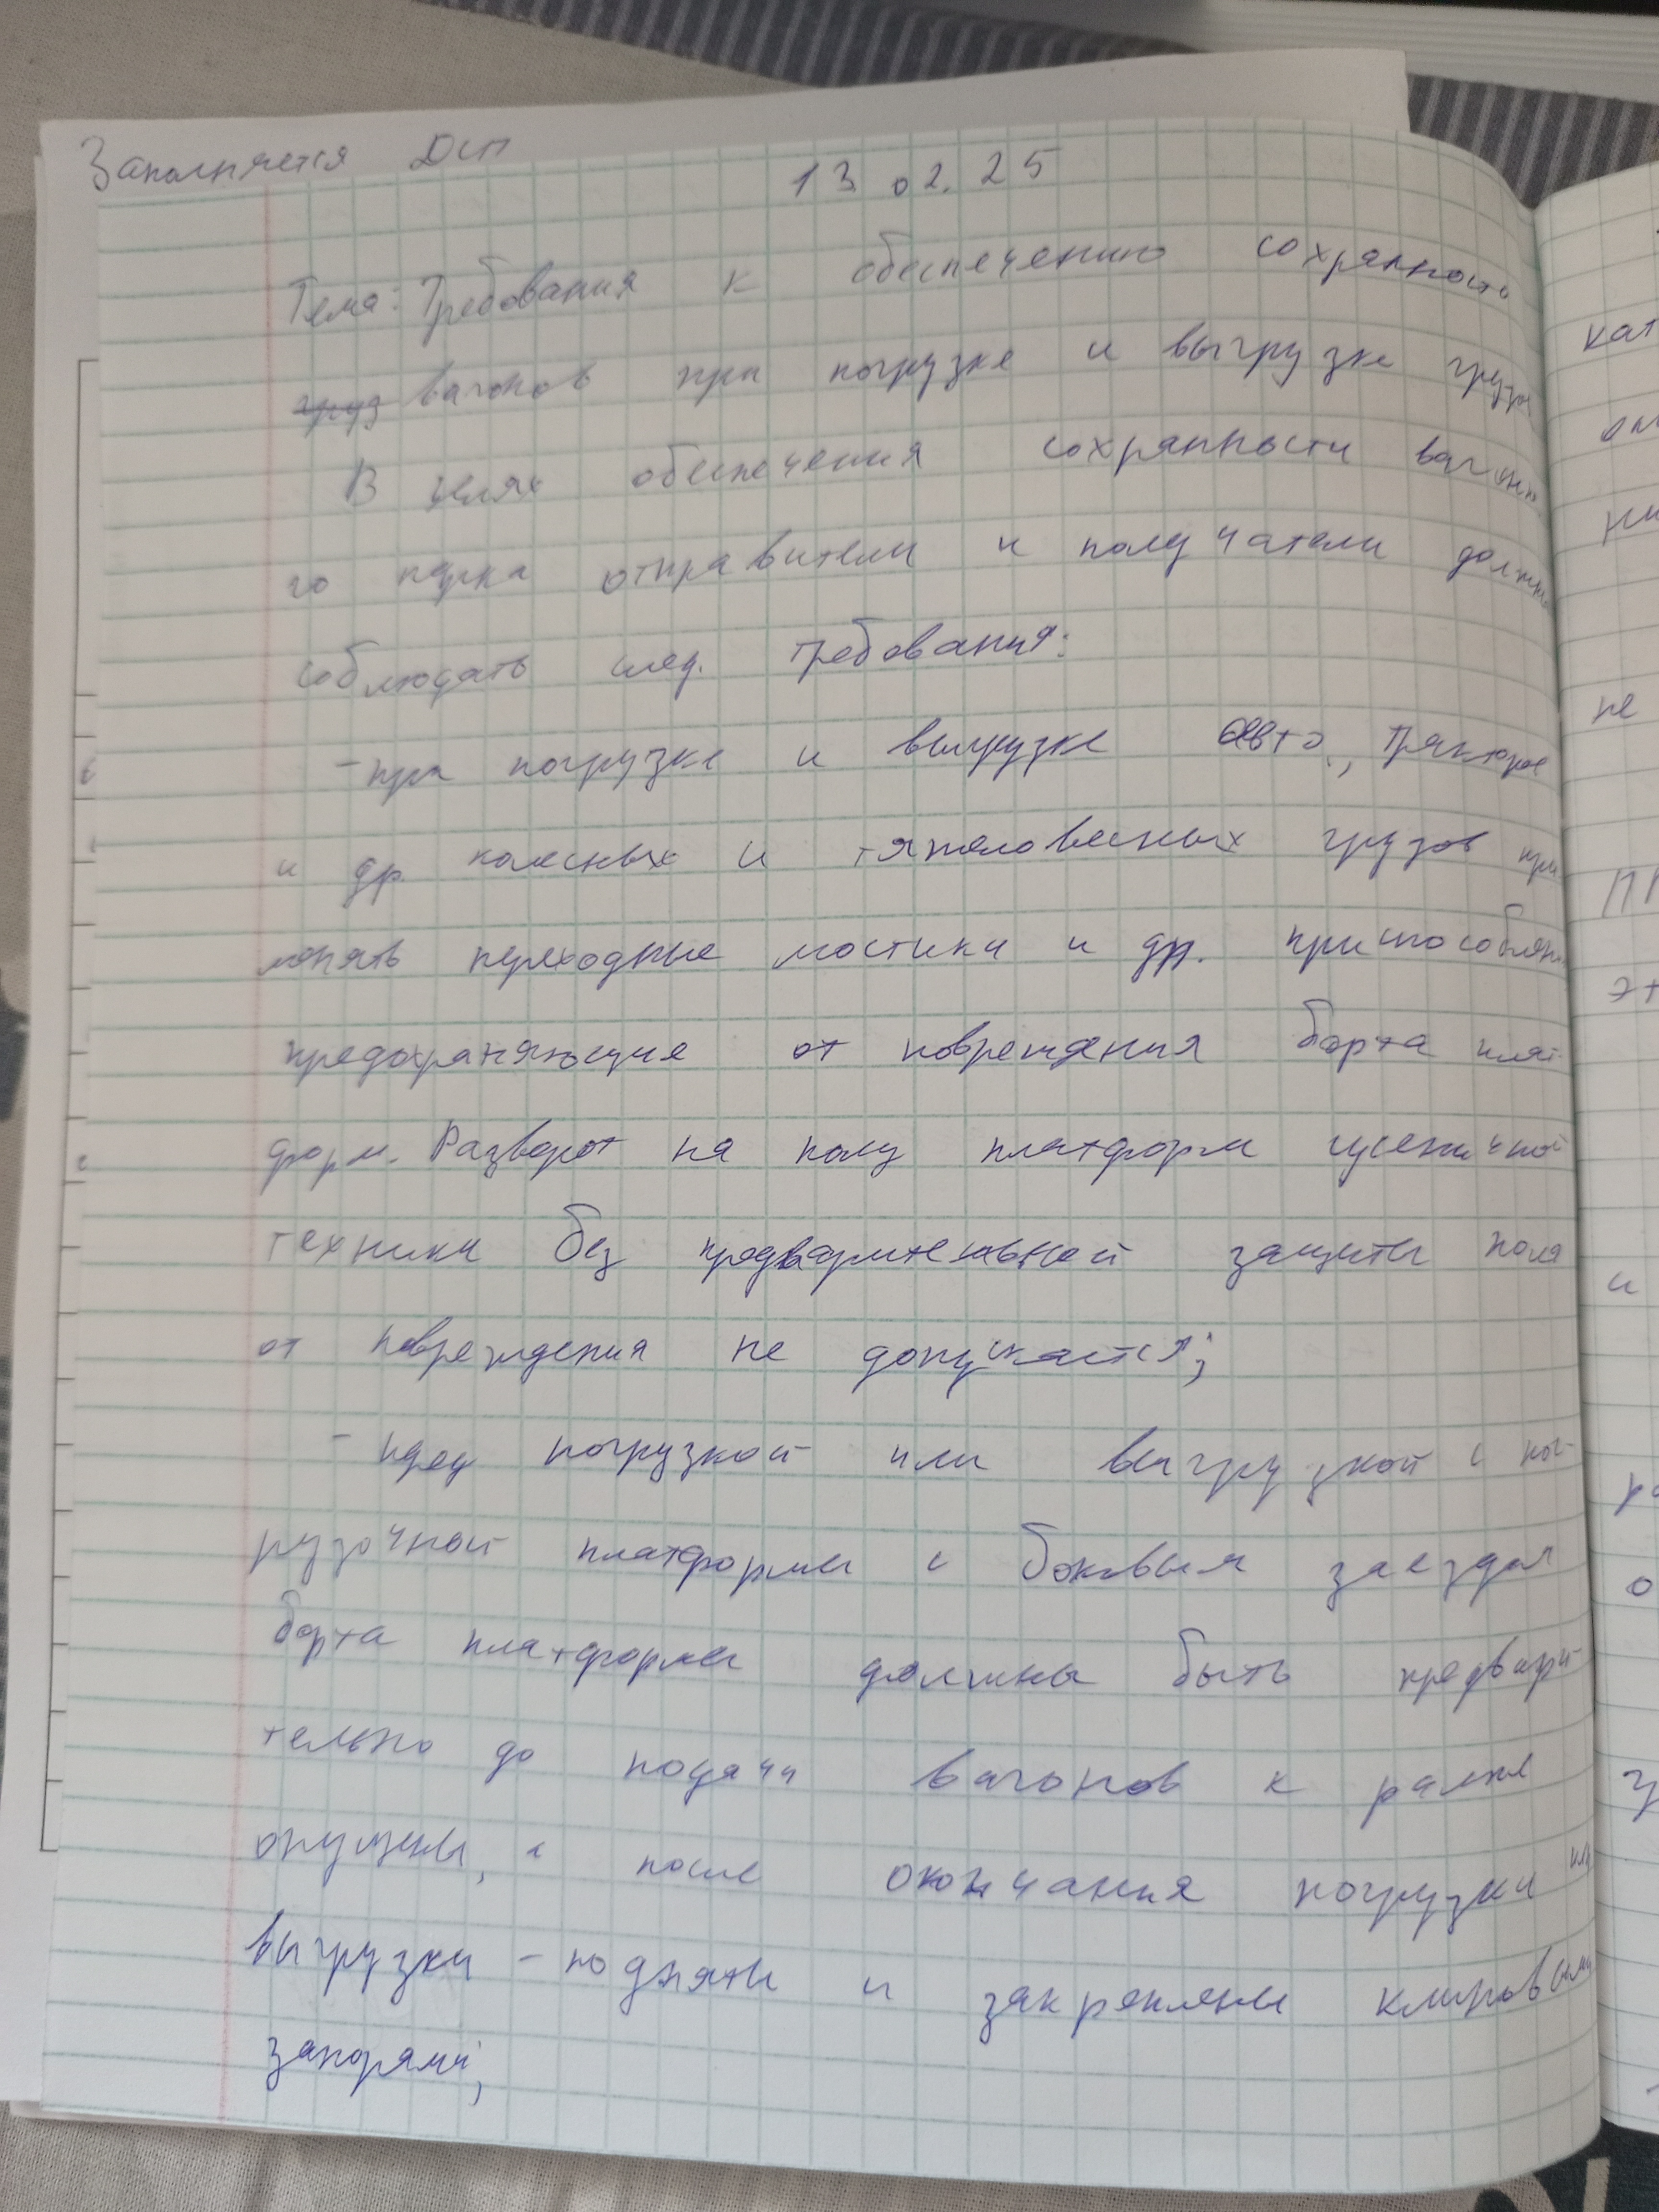 Заполняется ДСП
13 02. 25
Тема: Требования к обеспечению сохранности
груз вагонов при погрузке и выгрузке груза
В целях обеспечения сохранности вагонно
го парка отправители и получатели должны
соблюдать след. требования:
- при погрузке и выгрузке авто, тракторов
и др. колесных и тяжеловесных грузов при
менять переходные мостики и др. приспособления
предохраняющие от повреждения борта плат-
форм. Разворот на полу платформ гусеничной
техники без предварительной защиты пола
от повреждения не допускается;
- пред погрузкой или выгрузкой с пог-
рузочной платформы с боковым заездом
борта платформы должны быть предвари-
тельно до подачи вагонов к рампе
опущены, а после окончания погрузки или
выгрузки - подняты и закреплены клиновыми
запорами;
кат
не
и